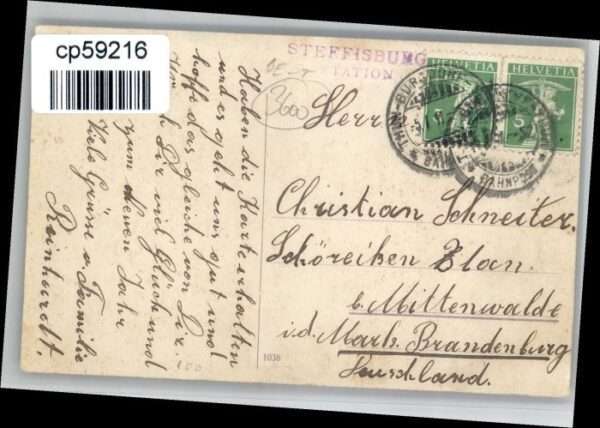 cp59216
STEFFISBURG
STATION
HELVETIA
HELVETIA
5
3600
Haben die Karte erhalten
und es geht uns gut und
hoffe das gleiche von Dir.
Dir viel Glück und
zum neuen Jahr
Viele Grüsse u Familie
Reinhardt.
Herrn
Christian Schneiter.
Schöreiken Zlan.
b. Mittenwalde
i.d. Mark. Brandenburg
Deuschland.
1036